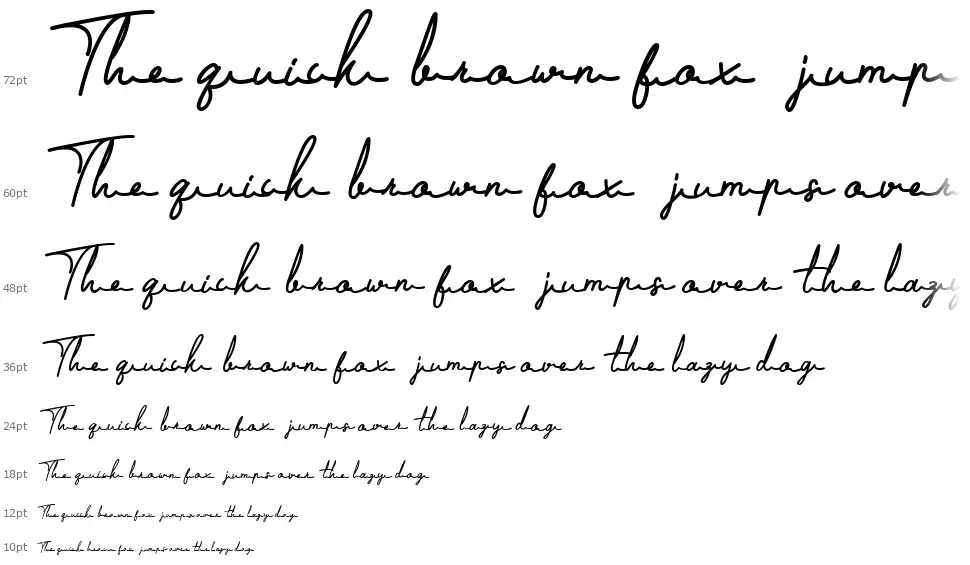 72pt The quick brown fox jump
60pt The quick brown fox jumps over
48pt The quick brown fox jumps over the lazy
36pt The quick brown fox jumps over the lazy dog
24pt The quick brown fox jumps over the lazy dog
18pt The quick brown fox jumps over the lazy dog
12pt The quick brown fox jumps over the lazy dog
10pt The quick brown fox jumps over the lazy dog